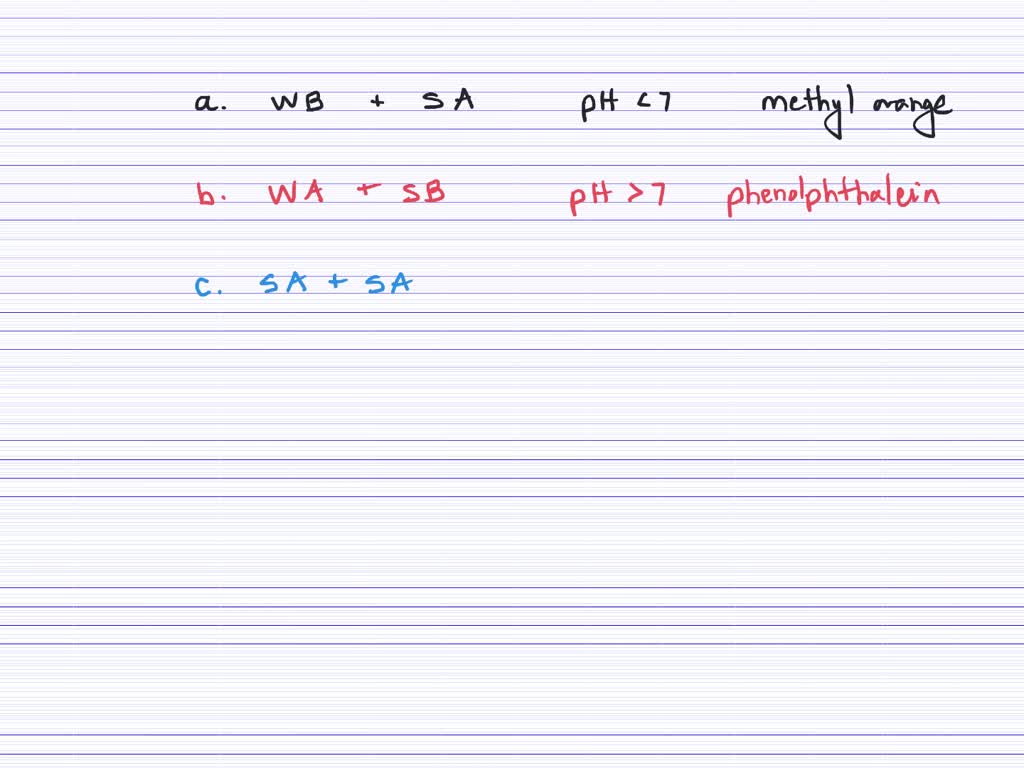 a. WB + SA pH < 7 methyl orange
b. WA + SB pH > 7 phenolphthalein
c. SA + SA